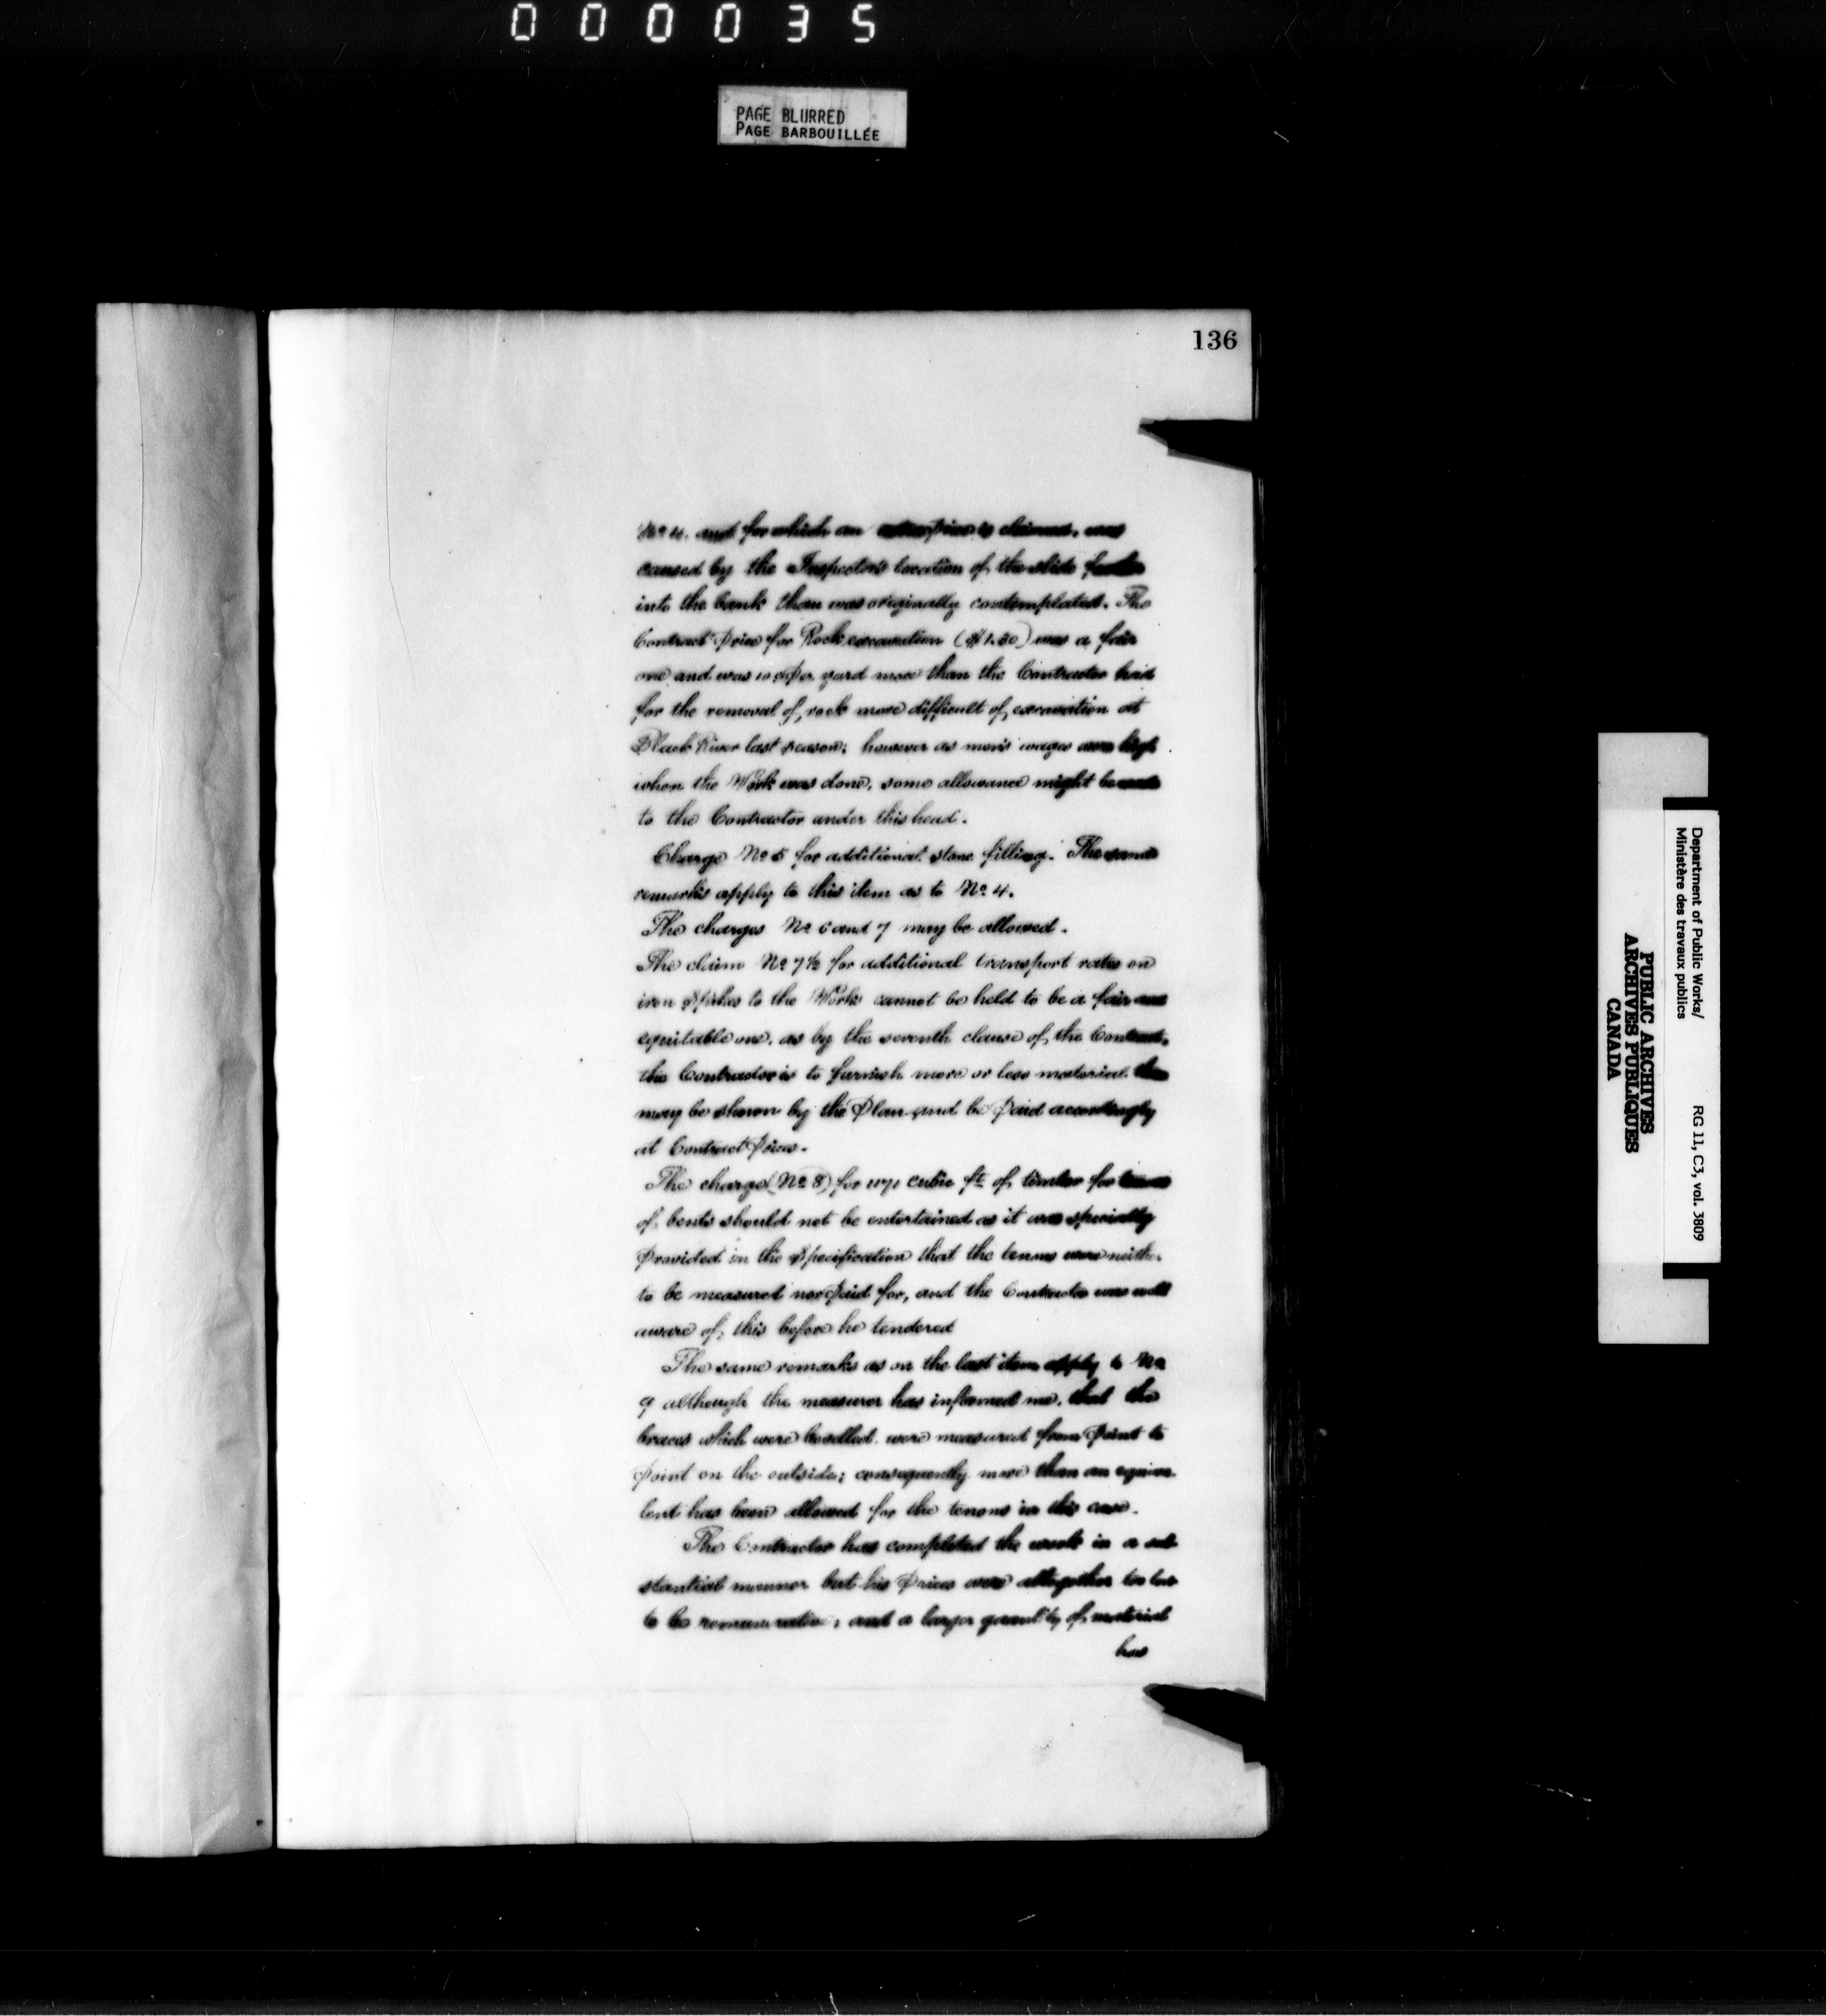 000035
PAGE BLURRED
PAGE BARBOUILLÉE
136
No 4. and for which an extra price is claimed, was
caused by the Inspector's location of the slide further
into the bank than was originally contemplated. The
Contract Price for Rock excavation ($1.30) was a fair
one and was 10 c per yard more than the Contractor had
for the removal of rock more difficult of excavation at
Black River last season; however as men's wages were high
when the Work was done, some allowance might be made
to the Contractor under this head.
Charge No 5 for additional stone filling. The same
remarks apply to this item as to No. 4.
The charges No 6 and 7 may be allowed.
The claim No 7½ for additional transport rates on
iron Spikes to the Works cannot be held to be a fair and
equitable one, as by the seventh clause of the Contract,
the Contractor is to furnish more or less material than
may be shown by the Plan and be Paid accordingly
at Contract Prices.
The charge (No 8) for cubic ft of timber for tenons
of bents should not be entertained as it was specially
Provided in the Specification that the tenons were neither
to be measured nor Paid for, and the Contractor was well
aware of this before he tendered
The same remarks as on the last item apply to No
9 although the measurer has informed me, that the
braces which were bevelled were measured from Point to
Point on the outside; consequently more than an equiva-
lent has been allowed for the tenons in this case.
The Contractor has completed the work in a sub-
stantial manner but his Prices were altogether too low
to be remunerative, and a larger quantity of material
has
Department of Public Works/
Ministère des travaux publics
RG 11, C3, vol. 3809
PUBLIC ARCHIVES
ARCHIVES PUBLIQUES
CANADA